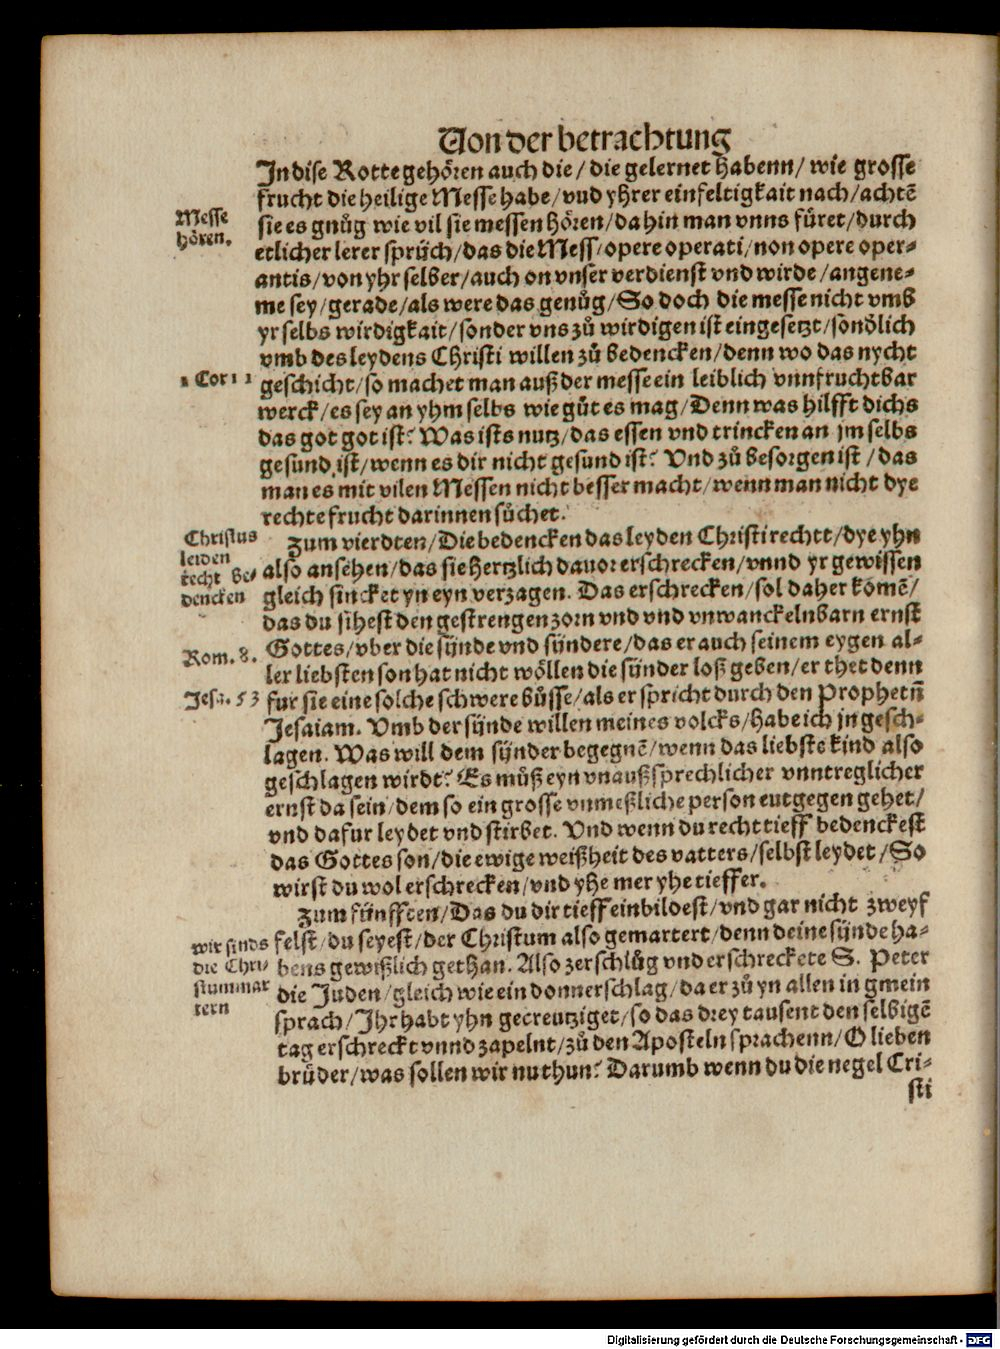 Von der betrachtung
In dise Rotte gehören auch die / die gelernet habenn / wie grosse
frucht die heilige Messe habe / vnd yhrer einfeltigkait nach / achtē
Messe
hören.
sie es gnůg wie vil sie messen hören / da hin man vnns fůret / durch
etlicher lerer sprüch / das die Mess / opere operati / non opere oper⸗
antis / von yhr selber / auch on vnser verdienst vnd wirde / angene⸗
me sey / gerade / als were das genůg / So doch die messe nicht vmb
yr selbs wirdigkait / sonder vns zů wirdigen ist eingesetzt / sonđlich
vmb des leydens Christi willen zů bedencken / denn wo das nycht
1 Cor 11
geschicht / so machet man auß der messe ein leiblich vnnfruchtbar
werck / es sey an yhm selbs wie gůt es mag / Denn was hilfft dichs
das got got ist? Was ists nutz / das essen vnd trincken an jm selbs
gesund ist / wenn es dir nicht gesund ist? Vnd zů besorgen ist / das
man es mit vilen Messen nicht besser macht / wenn man nicht dye
rechte frucht darinnen sůchet.
Christus
leiden
recht be⸗
dencken
Zum vierdten / Die bedencken das leyden Christi rechtt / dye yhn
also ansehen / das sie hertzlich dauor erschrecken / vnnd yr gewissen
gleich sincket yn eyn verzagen. Das erschrecken / sol daher komē /
das du sihest den gestrengen zorn vnd vnd vnwanckelnbarn ernst
Rom. 8.
Gottes / vber die sünde vnd sündere / das er auch seinem eygen al⸗
ler liebsten son hat nicht wöllen die sünder loß geben / er thet denn
Jesa. 53
fur sie eine solche schwere bůsse / als er spricht durch den Prophetn̄
Jesaiam. Vmb der sünde willen meines volcks / habe ich jn gesch⸗
lagen. Was will dem sünder begegnē / wenn das liebste kind also
geschlagen wirdt? Es můß eyn vnaußsprechlicher vnntreglicher
ernst da sein / dem so ein grosse vnmeßliche person eutgegen gehet /
vnd dafur leydet vnd stirbet. Vnd wenn du recht tieff bedenckest
das Gottes son / die ewige weißheit des vatters / selbst leydet / So
wirst du wol erschrecken / vnd yhe mer yhe tieffer.
Zum fünfften / Das du dir tieff einbildest / vnd gar nicht zweyf
wir sinds
die Chri⸗
stum mar
tern
felst / du seyest / der Christum also gemartert / denn deine sünde ha⸗
bens gewißlich gethan. Also zerschlůg vnd erschreckete S. Peter
die Juden / gleich wie ein donnerschlag / da er zů yn allen in gmein
sprach / Ihr habt yhn gecreutziget / so das drey tausent den selbigē
tag erschreckt vnnd zapelnt / zů den Aposteln sprachenn / O lieben
brůder / was sollen wir nu thun? Darumb wenn du die negel Cri⸗
sti
Digitalisierung gefördert durch die Deutsche Forschungsgemeinschaft - DFG